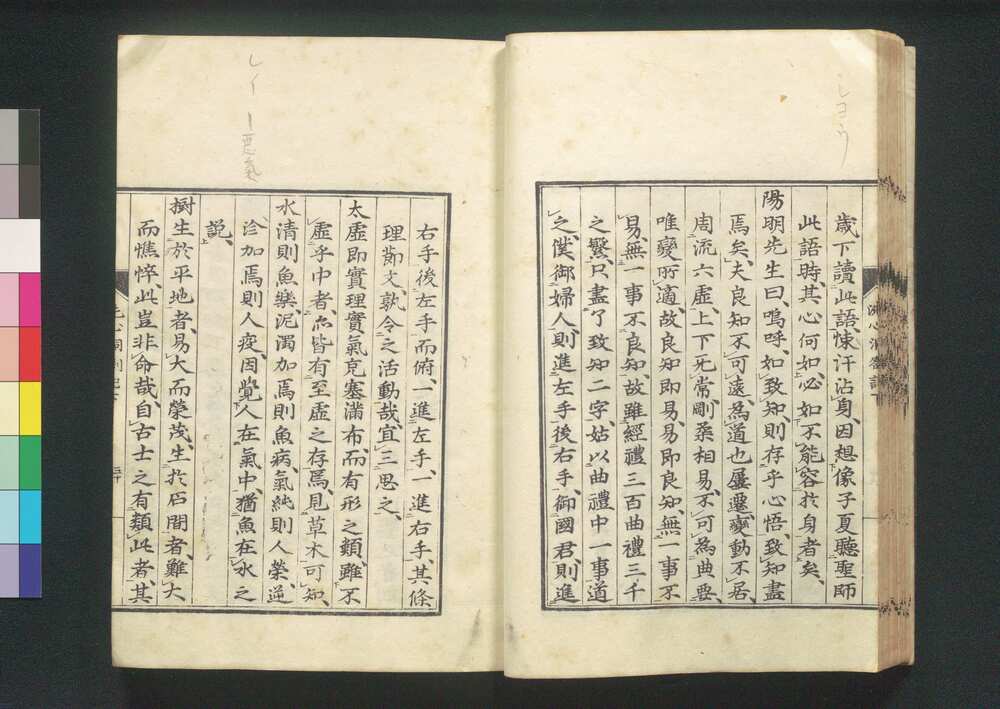 歲下讀此語、悚汗沾身、因想像子夏聽聖師
此語時、其心何如、必如不能容於身者矣、
陽明先生曰、嗚呼、如致知則存乎心悟、致知盡
焉矣、夫良知不可遠、為道也屢遷、變動不居、
周流六虛、上下无常、剛柔相易、不可為典要、
唯變所適、故良知即易、易即良知、無一事不
易、無一事不良知、故雖經禮三百曲禮三千
之繁、只盡了致知二字、姑以曲禮中一事道
之、僕御婦人、則進左手、後右手、御國君、則進
右手後左手而俯、一進左手、一進右手、其條
理節文、孰令之活動哉、宜三思之、
太虛即實理實氣充塞滿布、而有形之類、雖不
虛乎中者、亦皆有至虛之存焉、見草木可知、
水清則魚樂、泥濁加焉則魚病、氣純則人榮、逆
沴加焉則人疫、因覺人在氣中、猶魚在水之
說、
樹生於平地者、易大而榮茂、生於石間者、難大
而憔悴、此豈非命哉、自古士之有類此者、其
レイ
ー惡氣